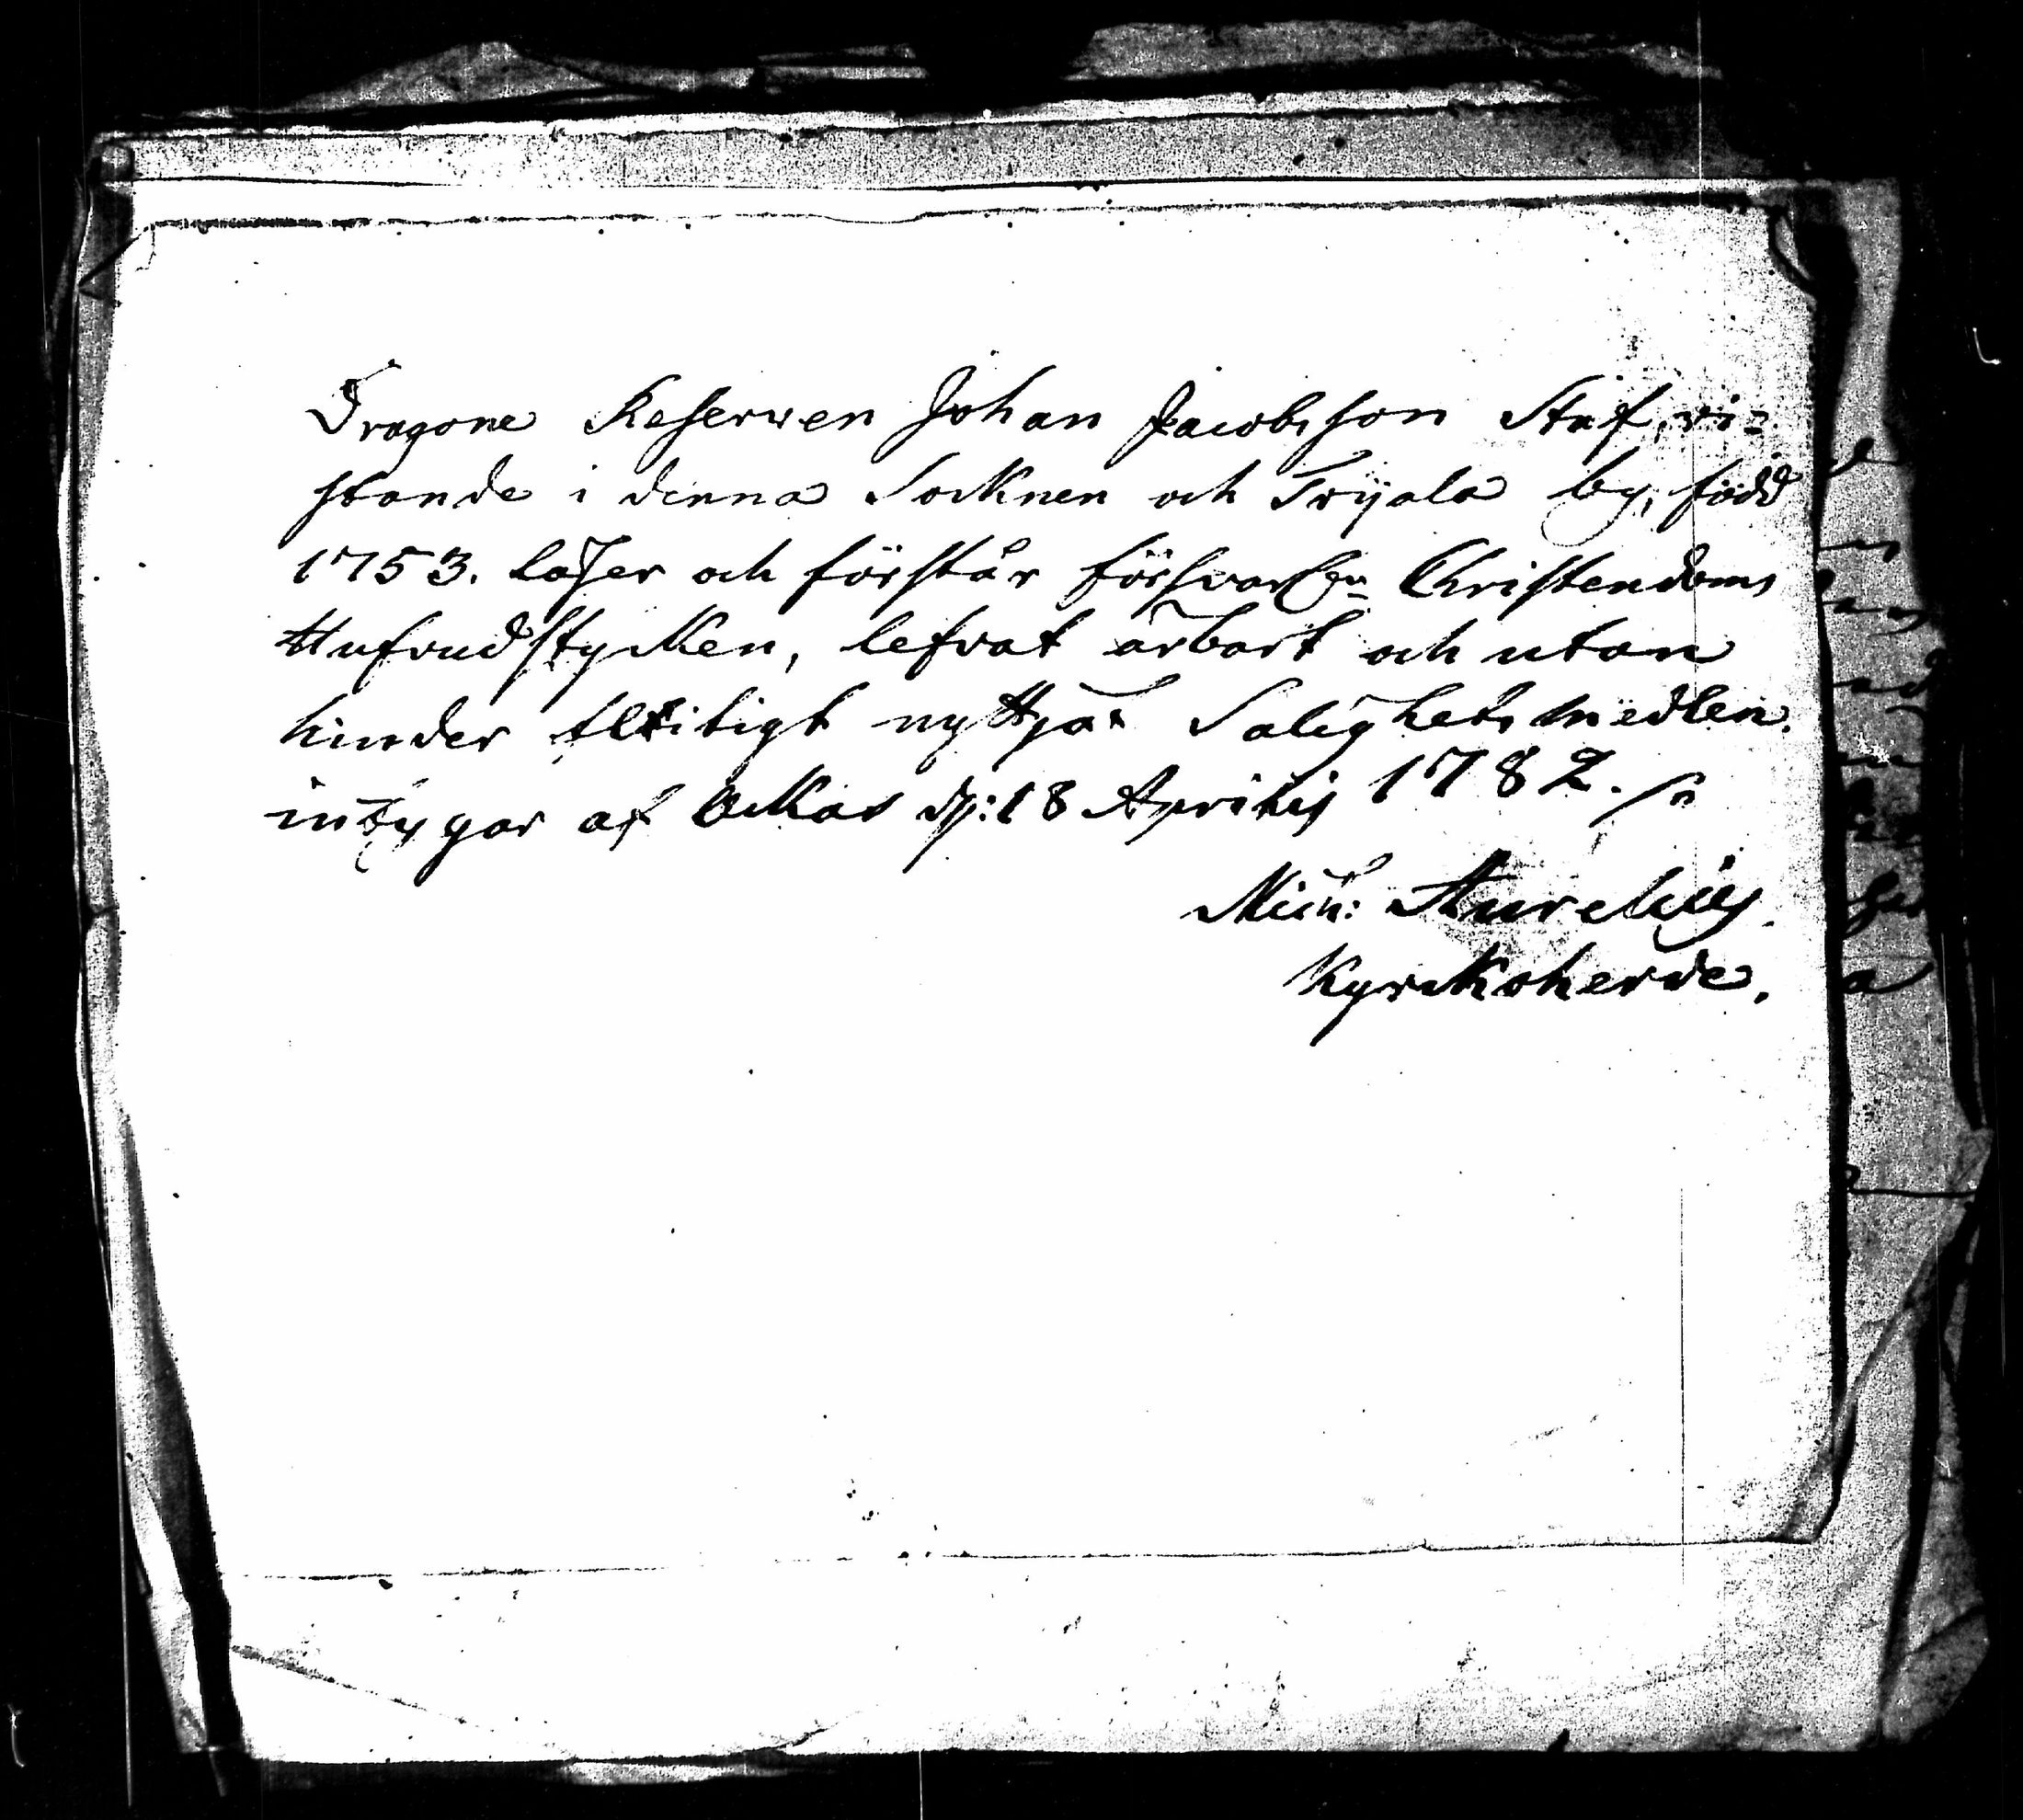 Dragone Reserven Johan Jacobsson Staf, vi=
stande i denna Socknen och Tryala by, född
1753. läser och förstår försvarl:n Christendoms
Hufvudstycken, lefvat ärbart och utan
hinder flitigt nyttjat Salighets medlen.
intygar af Ackas d: 18 Aprilis 1782.
Mich: Aurelius
Kyrckoherde.